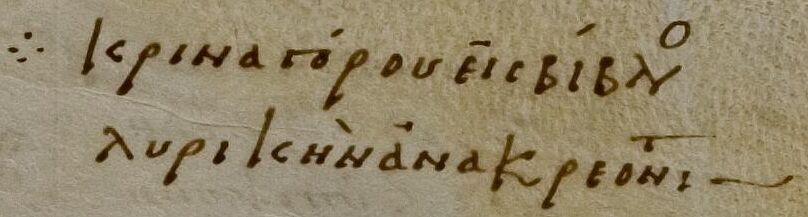 ⁘ κριναγόρου εἰς βίβλο
λυρικὴν ἀνακρεοντι